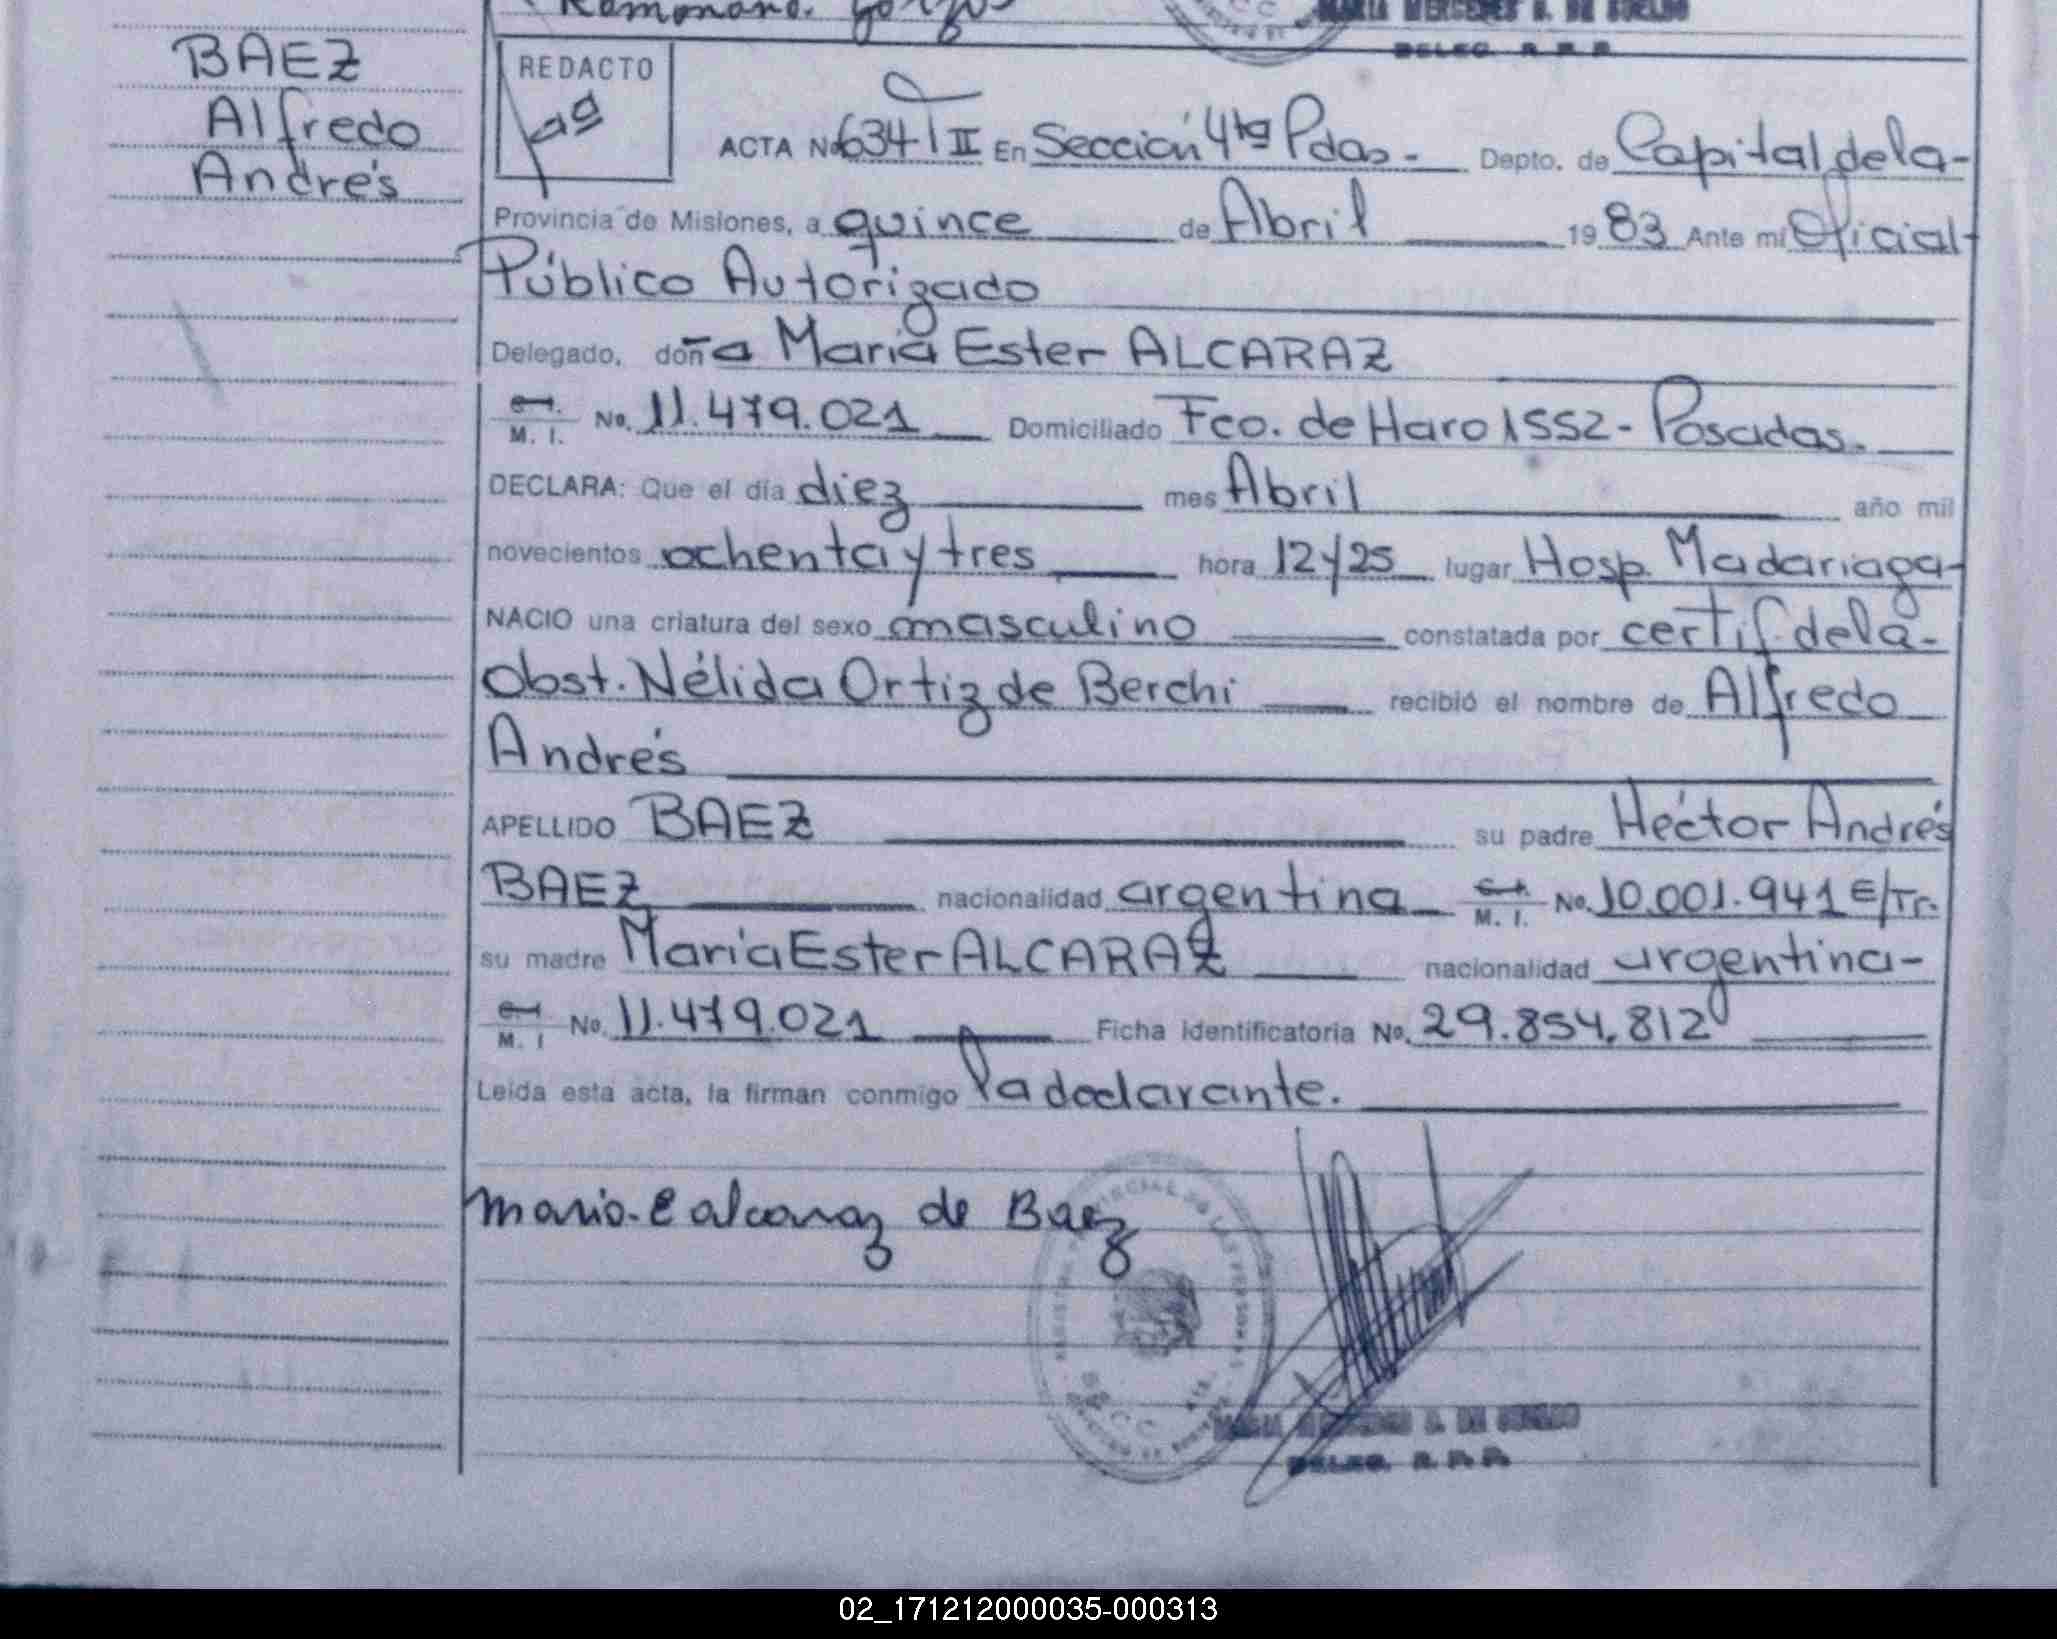 BAEZ
Alfredo
Andrés
REDACTO
ACTA No 634 T II En Sección 4ta Pdas.- Depto. de Capital de la-
Provincia de Misiones, a quince de Abril 1983 Ante mí Oficial-
Público Autorizado
Delegado, doña María Ester ALCARAZ
M. I. No. 11.479.021 Domiciliado Fco. de Haro 1552 - Posadas.-
DECLARA: Que el día diez mes Abril año mil
novecientos ochenta y tres hora 12 y 25 lugar Hosp. Madariaga-
NACIO una criatura del sexo masculino constatada por certif. de la-
Obst. Nélida Ortiz de Berchi recibió el nombre de Alfredo
Andrés
APELLIDO BAEZ su padre Héctor Andrés
BAEZ nacionalidad argentina M. I. No. 10.001.941 E/Tr.
su madre María Ester ALCARAZ nacionalidad argentina-
M. I No. 11.479.021 Ficha Identificatoria No. 29.854.812
Leída esta acta, la firman conmigo la declarante.
Maria E alcaraz de Baez
DELEG. R. P. P.
02_171212000035-000313